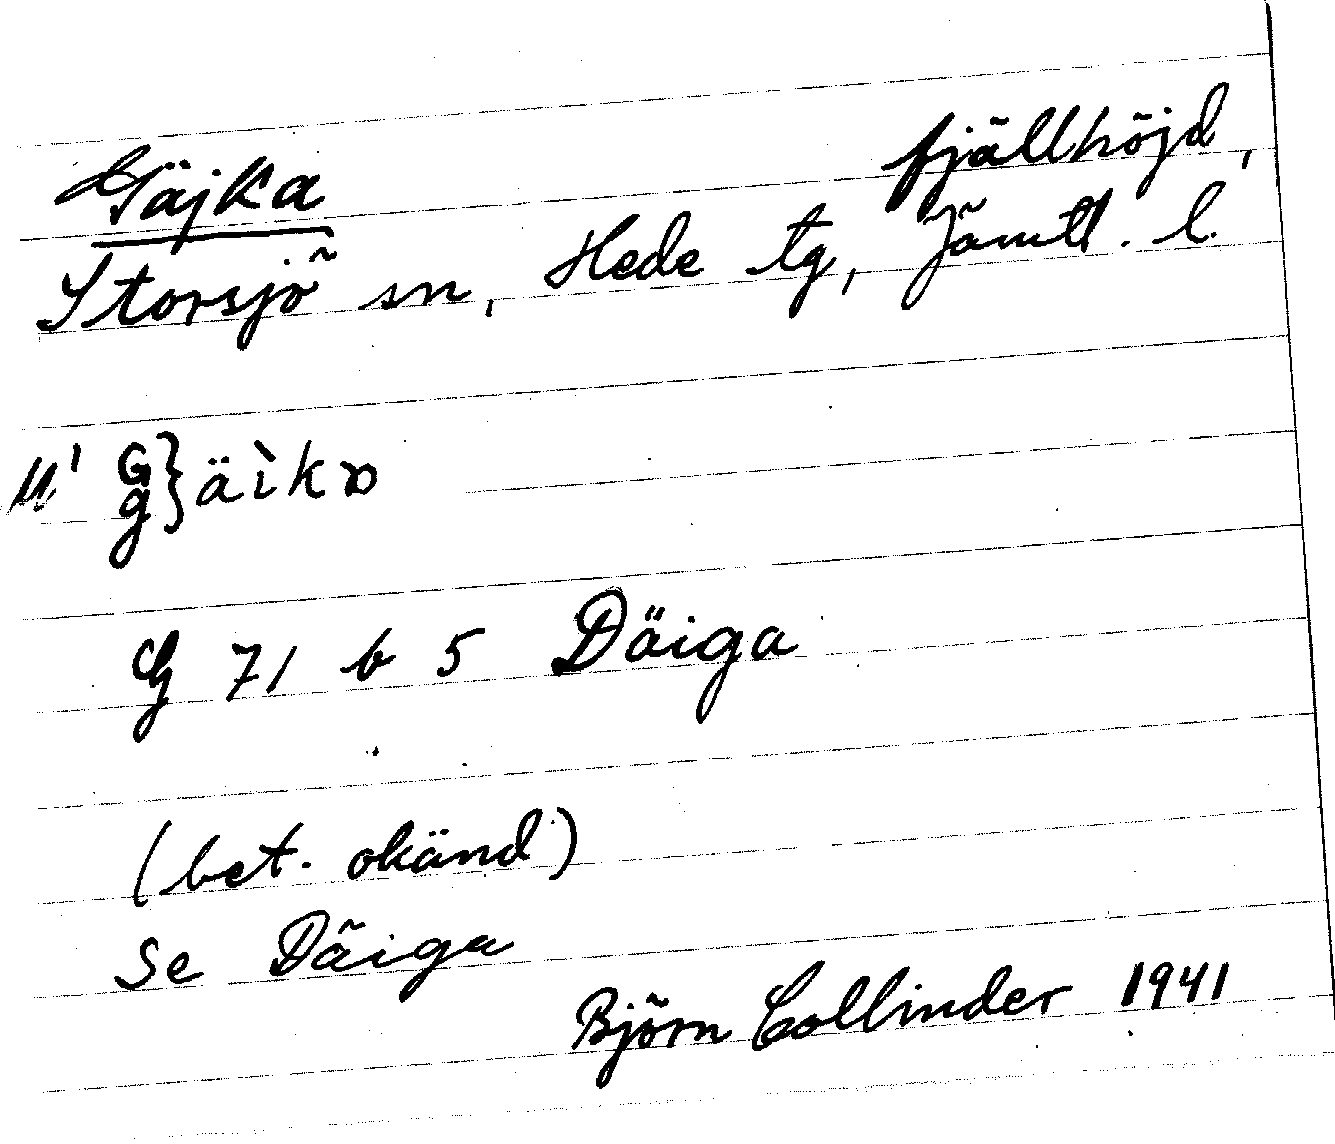 Gäjka fjällhöjd,
Storsjö sn, Hede tg, Jämtl. l.
G
g } äìkɒ
G 71 b 5 Däiga
(bet. okänd)
Se Däiga
Björn Collinder 1941